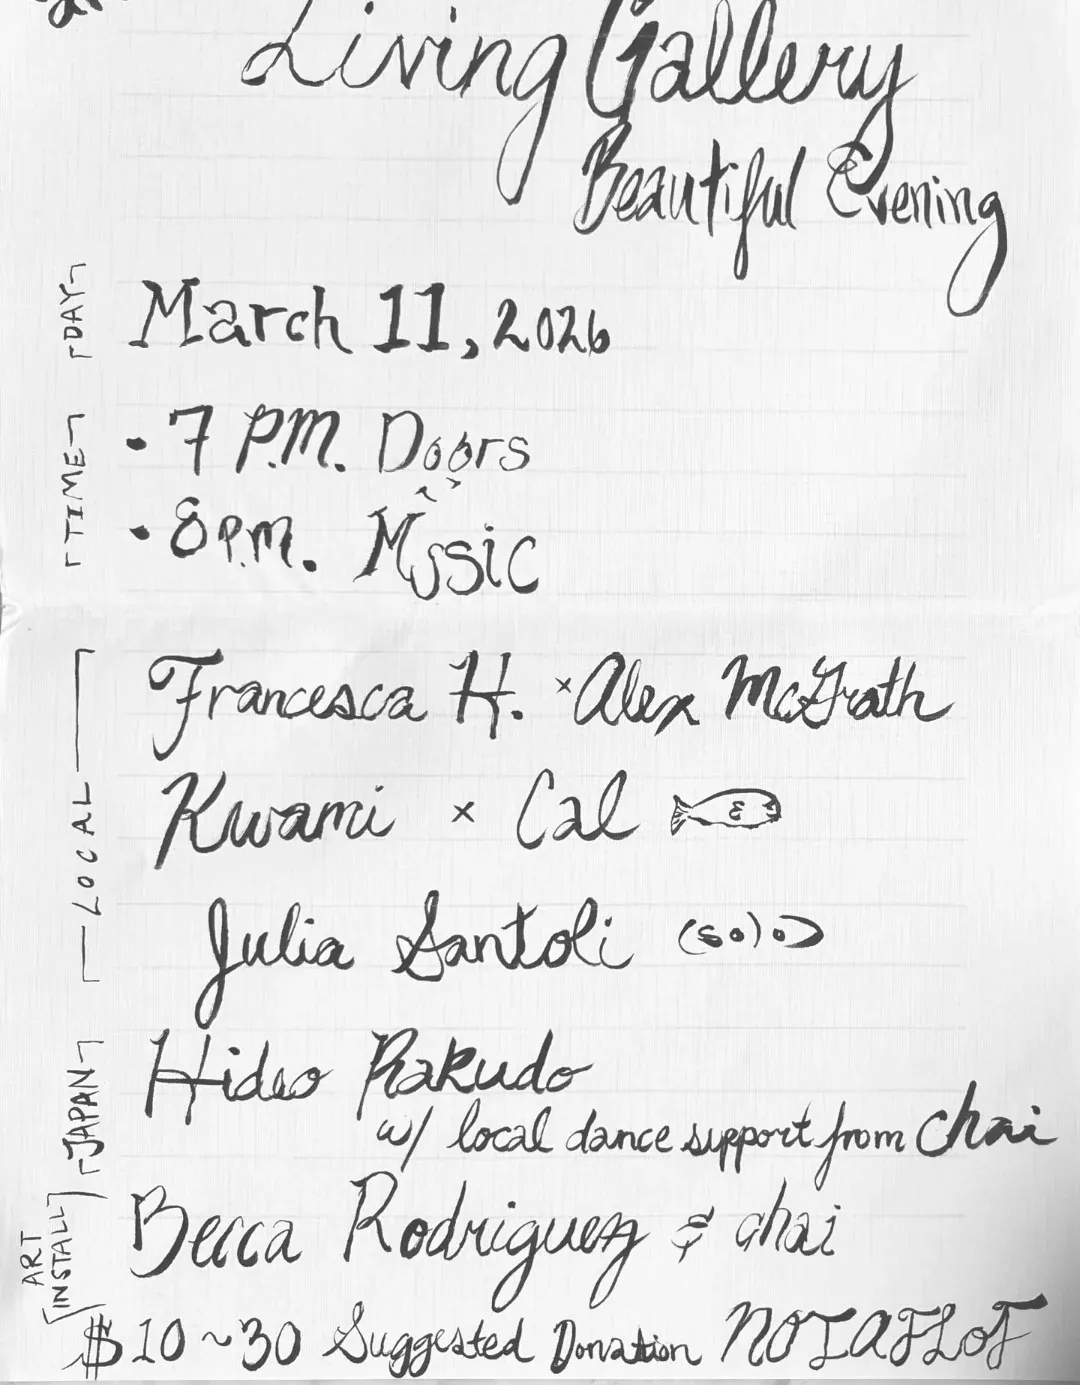 Living Gallery
Beautiful Evening
「DAY」 March 11, 2026
「TIME」 • 7 P.M. Doors
• 8 P.M. Music
LOCAL
Francesca H. × Alex McGrath
Kwami × Cal
Julia Santoli (solo)
「JAPAN」 Hideo Rakudo
w/ local dance support from Chai
「ART INSTALL」 Becca Rodriguez & chai
$10~30 Suggested Donation NOTAFLOF